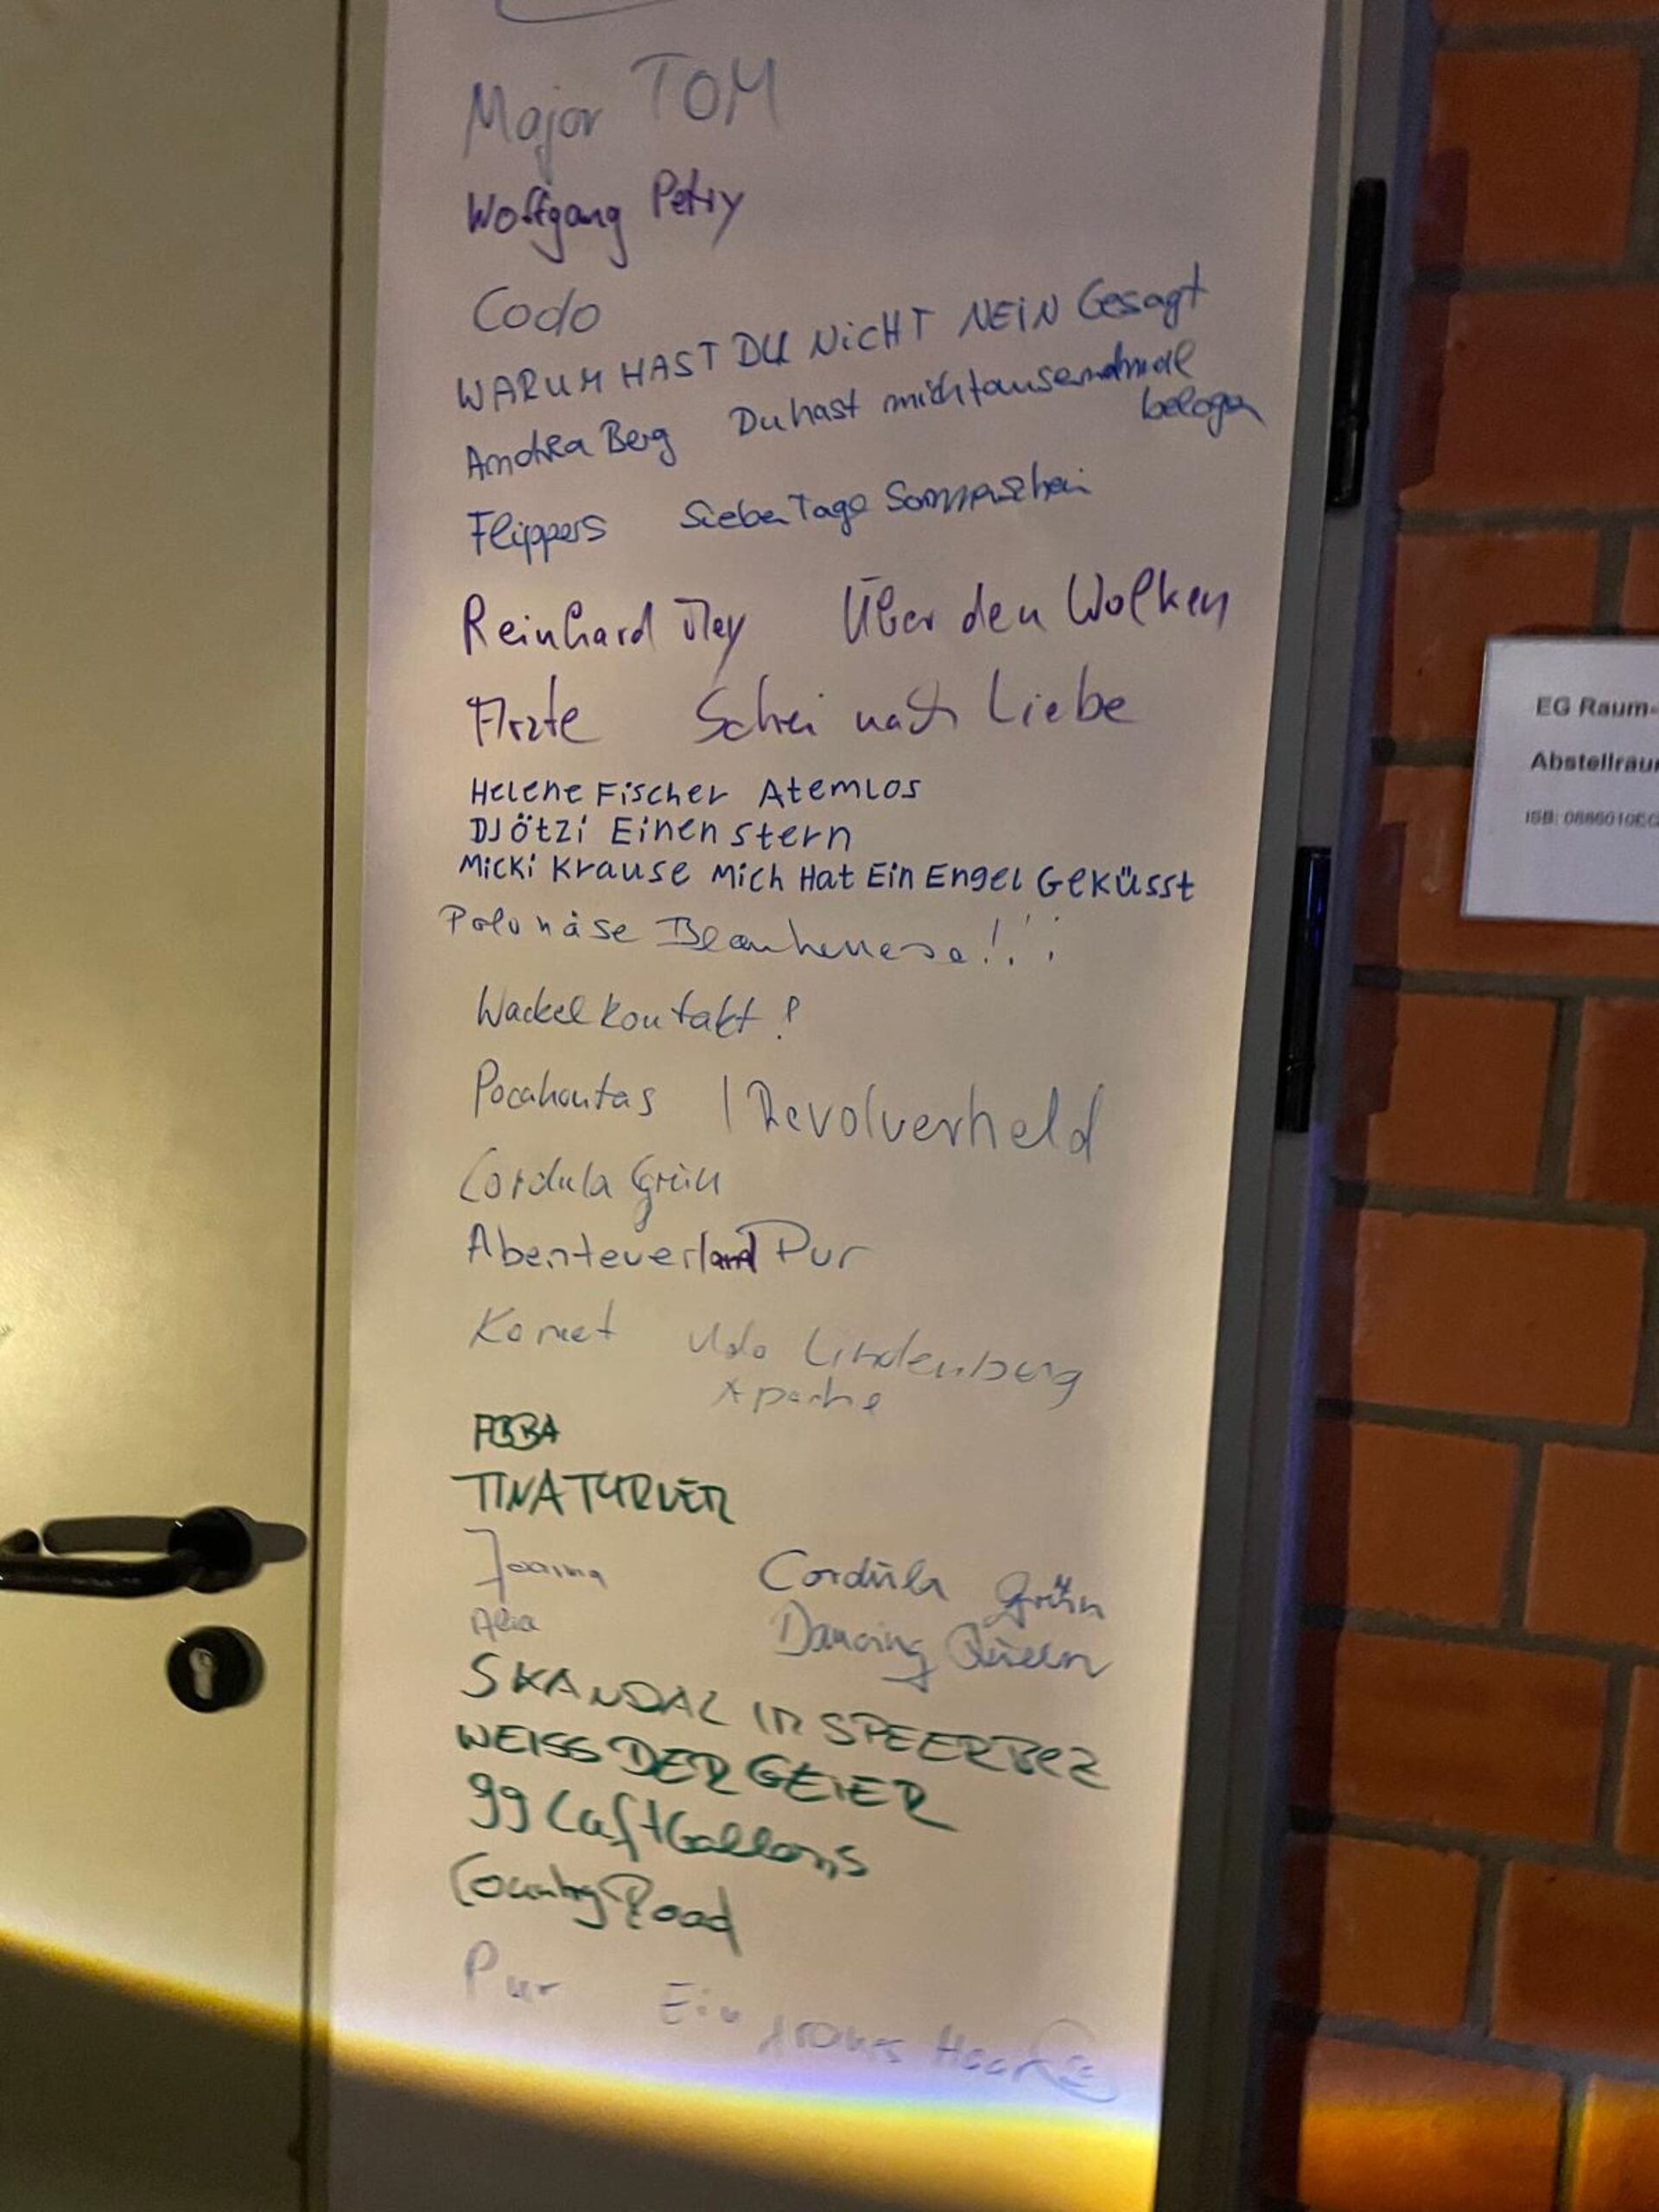 Major TOM
Wolfgang Petry
Codo
WARUM HAST DU NiCHT NEiN Gesagt
Andrea Berg Du hast mich tausendmal
belogen
Flippers Sieben Tage Sonnenschein
Reinhard Mey Über den Wolken
Ärzte Schrei nach Liebe
Helene Fischer Atemlos
DJ Ötzi Einen Stern
Micki Krause Mich Hat Ein Engel Geküsst
Polonäse Blankenese!!!
Wackelkontakt!
Pocahontas | Revolverheld
Cordula Grün
Abenteuerland Pur
Komet Udo Lindenberg
Apache
ABBA
TINA TURNER
Cordula Grün
Dancing Queen
SKANDAL IM SPEERBEZ
WEISS DER GEIER
99 Luftballons
Country Road
Pur Ein graues Haar
EG Raum-
Abstellrau